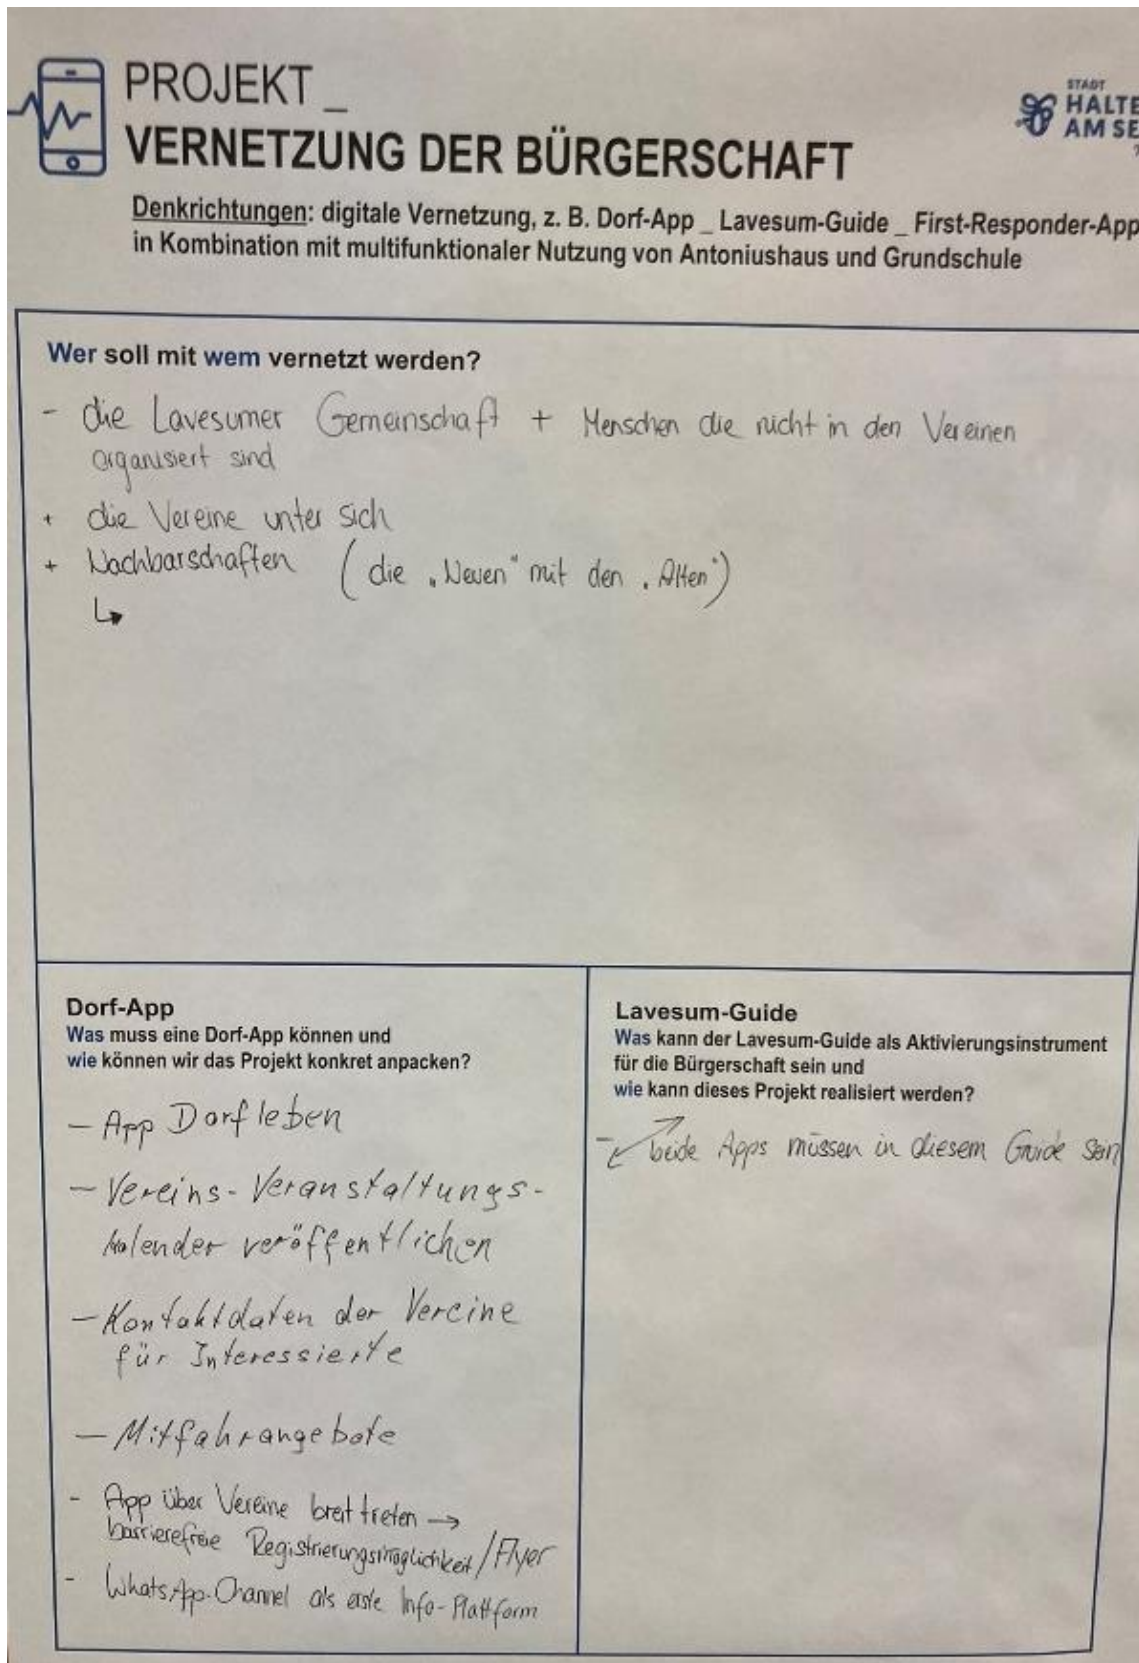 PROJEKT _
VERNETZUNG DER BÜRGERSCHAFT
STADT
HALTE
AM SE
Denkrichtungen: digitale Vernetzung, z. B. Dorf-App _ Lavesum-Guide _ First-Responder-App
in Kombination mit multifunktionaler Nutzung von Antoniushaus und Grundschule
Wer soll mit wem vernetzt werden?
- die Lavesumer Gemeinschaft + Menschen die nicht in den Vereinen
organisiert sind
+ die Vereine unter sich
+ Nachbarschaften (die „Neuen“ mit den „Alten“)
↳
Dorf-App
Was muss eine Dorf-App können und
wie können wir das Projekt konkret anpacken?
- App Dorfleben
- Vereins-Veranstaltungs-
kalender veröffentlichen
- Kontaktdaten der Vereine
für Interessierte
- Mitfahrangebote
- App über Vereine breit treten →
barrierefreie Registrierungsmöglichkeit/Flyer
- WhatsApp-Channel als erste Info-Plattform
Lavesum-Guide
Was kann der Lavesum-Guide als Aktivierungsinstrument
für die Bürgerschaft sein und
wie kann dieses Projekt realisiert werden?
- beide Apps müssen in diesem Guide sein